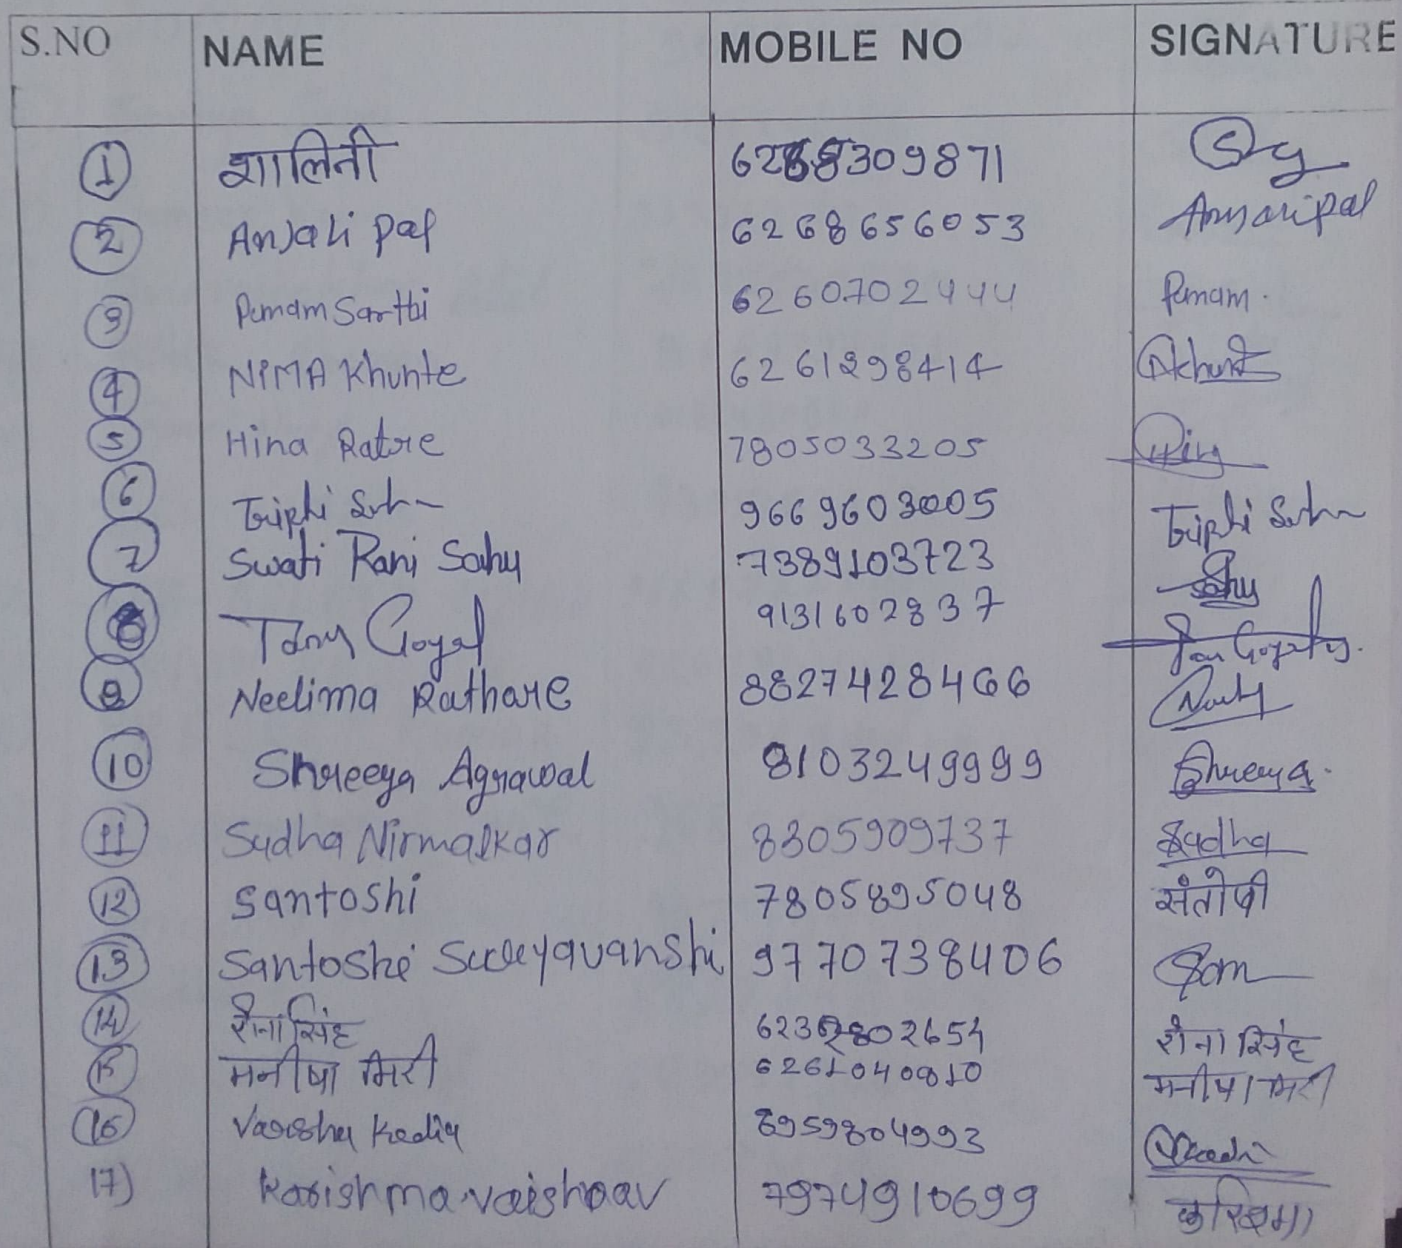 S.NO NAME MOBILE NO SIGNATURE
1 शालिनी 6268309871 Sy
2 Anjali pal 6268656053 Anjali pal
3 Punam Sarthi 6260702444 Punam.
4 NIMA Khunte 6261298414 Nkhunte
5 Hina Ratre 7805033205 Hina
6 Tripti Sinha 9669603005 Tripti Sinha
7 Swati Rani Sahu 7389103723 Sahu
8 Tanu Goyal 9131602837
9 Neelima Rathore 8827428466
10 Shreeya Agrawal 8103249999 Shreeya.
11 Sudha Nirmalkar 8305909737 Sudha
12 Santoshi 7805895048 संतोषी
13 Santoshi Suryavanshi 9770738406 Som
14 रौना सिंह 2654 रौना सिंह
15 मनीषा मिरी 6261040810 मनीषा मिरी
16 Varsha Kedia 8959804993
17) Karishma vaishnav 7974910699 करिश्मा